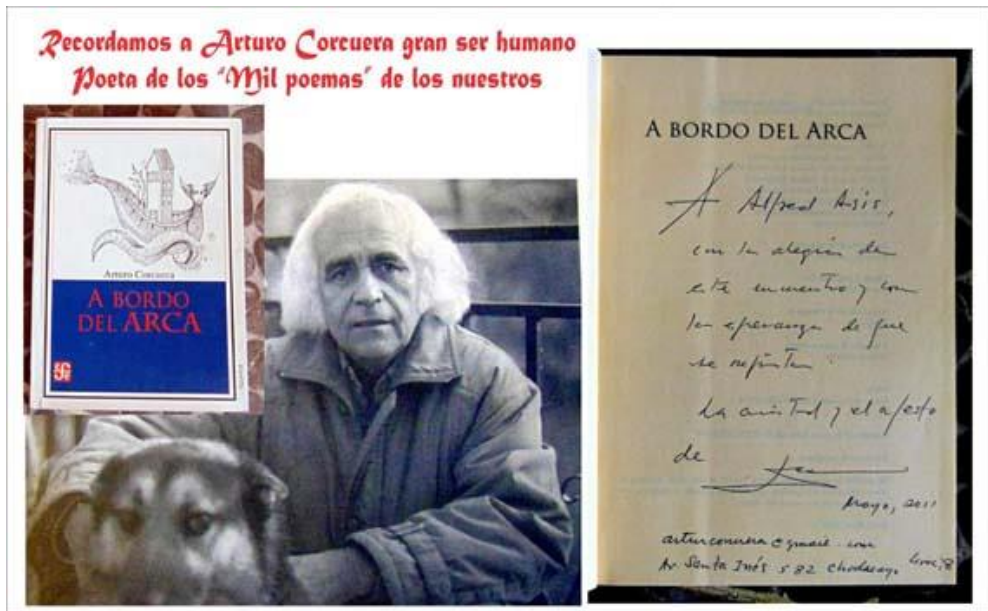 Recordamos a Arturo Corcuera gran ser humano
Poeta de los "Mil poemas" de los nuestros
Arturo Corcuera
A BORDO
DEL ARCA
A BORDO DEL ARCA
A Alfred Asis,
con la alegría de
este encuentro y con
la esperanza de que
se repitan.
La amistad y el afecto
de
Mayo, 2011
Av. Santa Inés 582 Chaclacayo